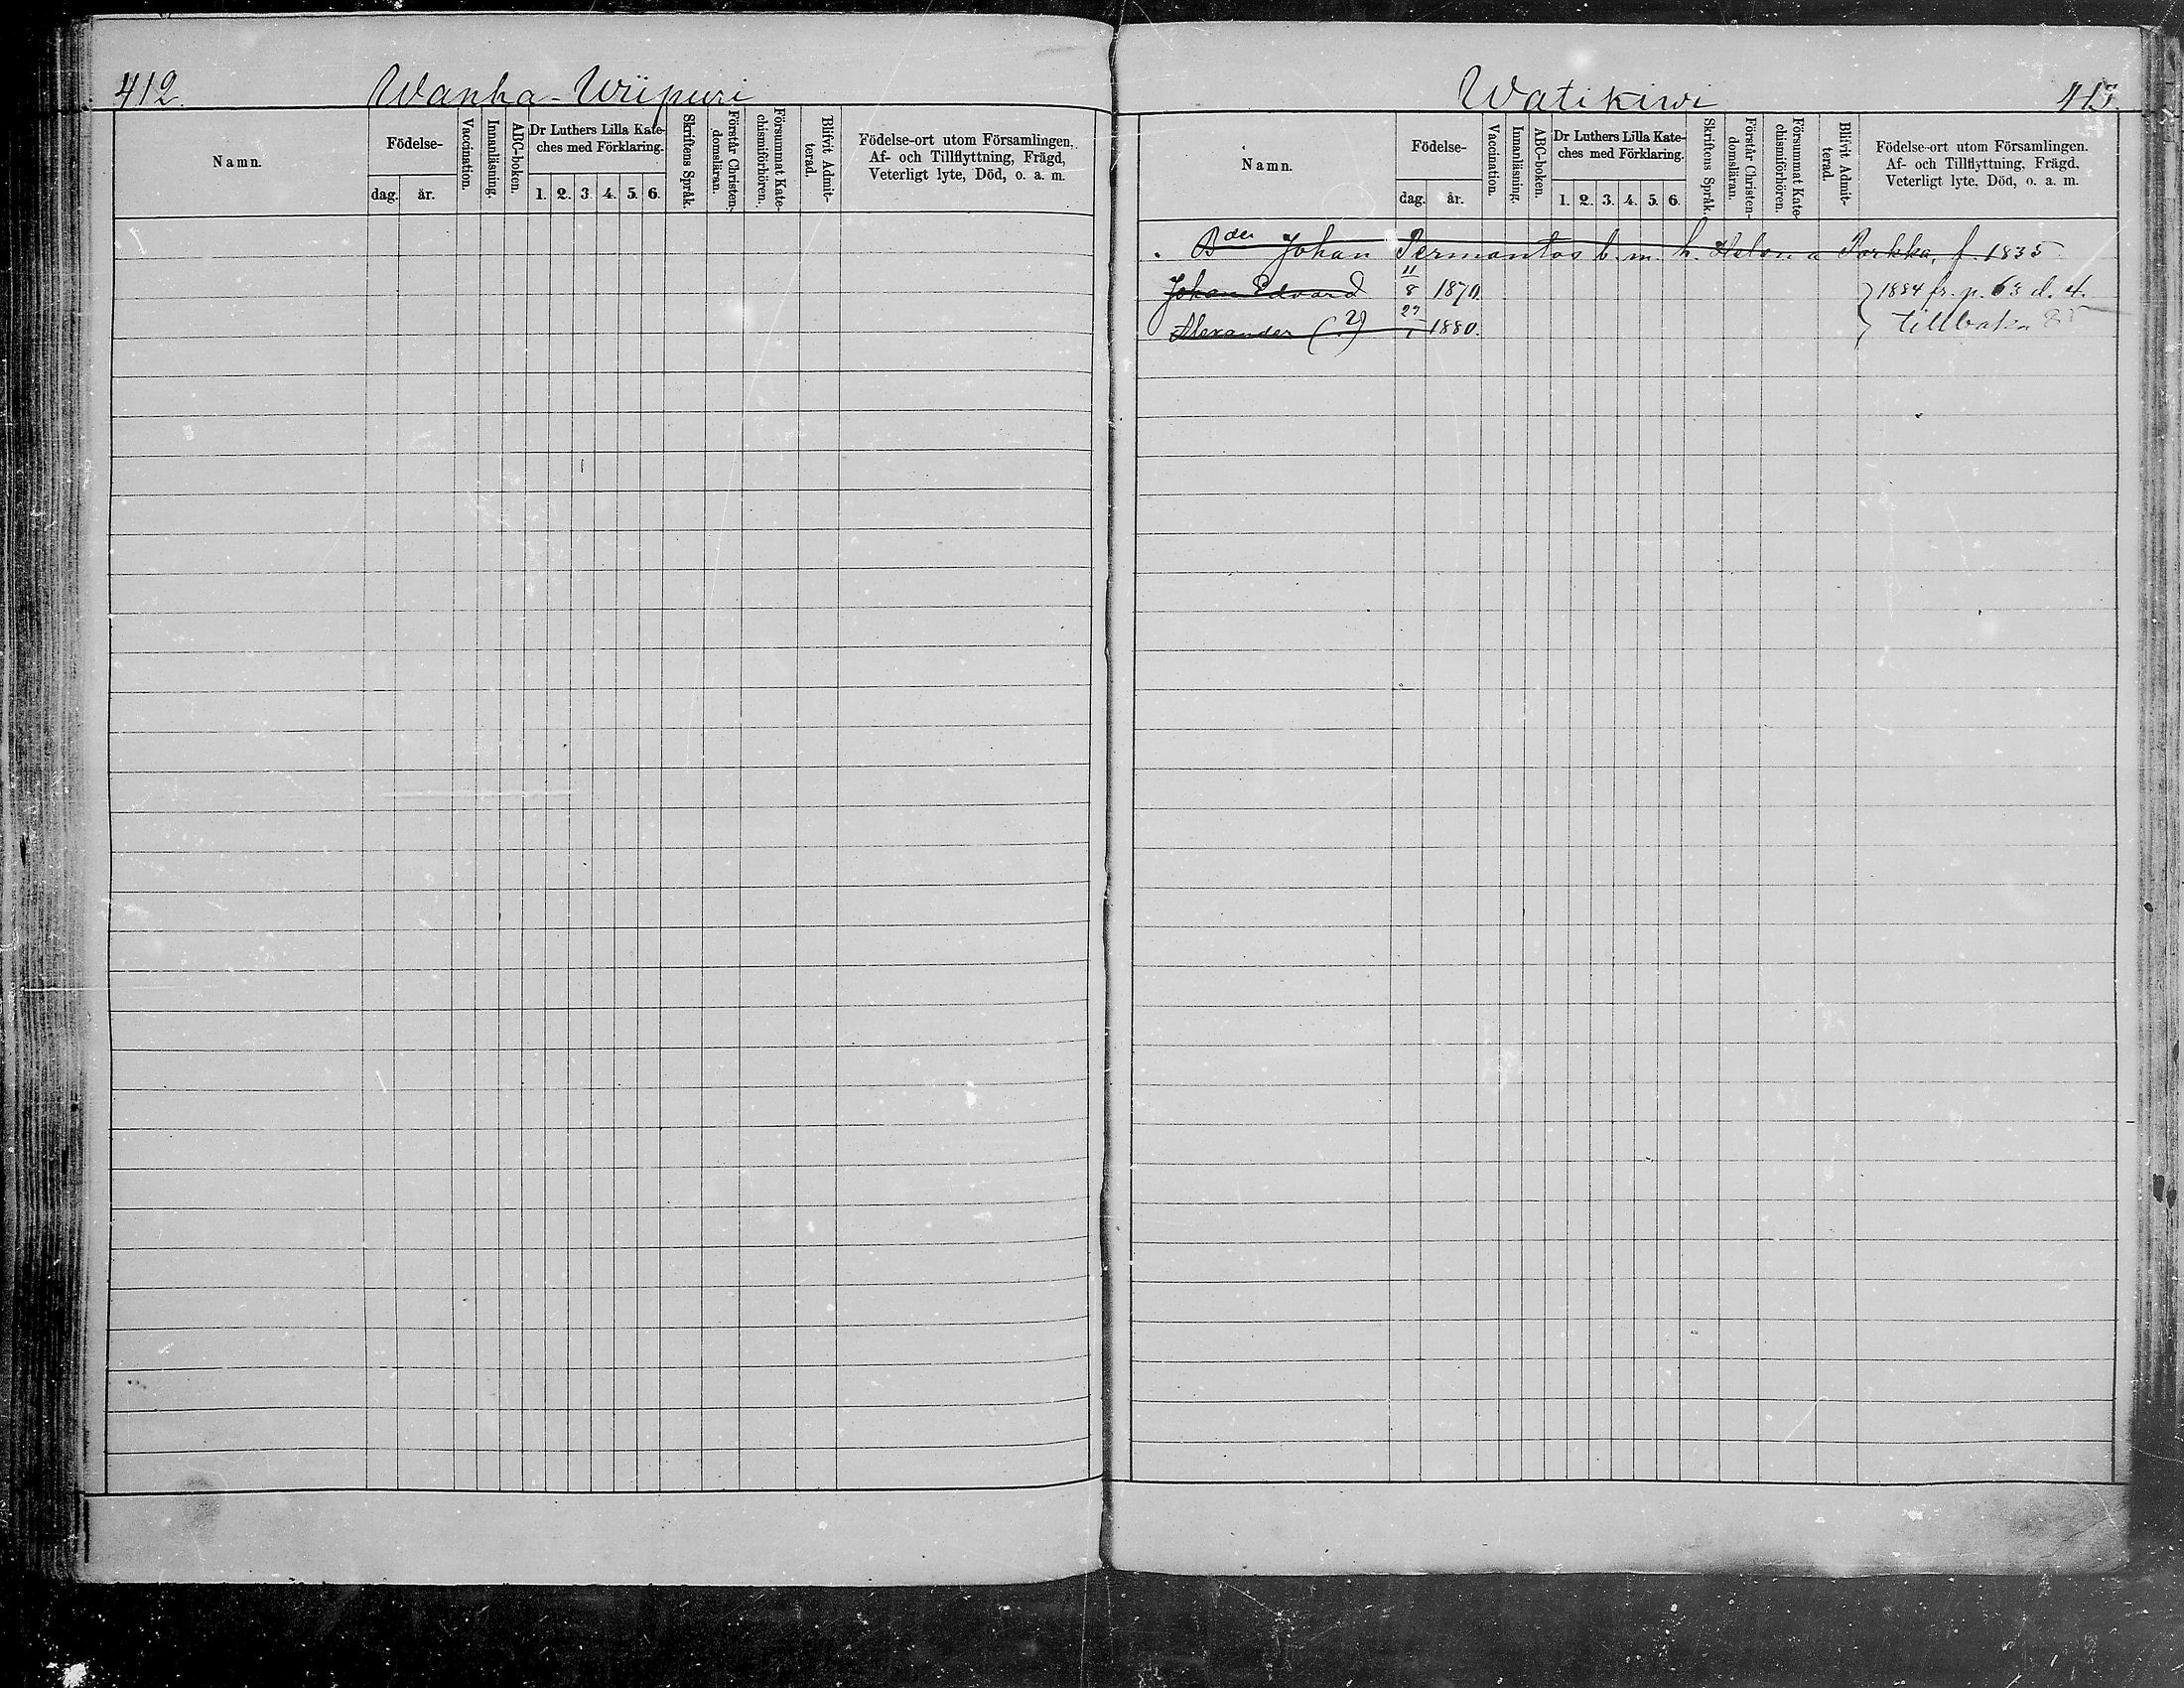 412.
Wanha-Wiipuri
Namn.
Födelse-
dag.
år.
Vaccination.
Innanläsning.
ABC-boken.
Dr Luthers Lilla Kate-
ches med Förklaring.
1. 2. 3. 4. 5. 6.
Skriftens Språk.
Förstår Christen-
domsläran.
Försummat Kate-
chismiförhören.
Blifvit Admit-
terad.
Födelse-ort utom Församlingen,
Af- och Tillflyttning, Frägd,
Veterligt lyte, Död, o. a. m.
Watikiwi
413.
Namn.
Födelse-
dag.
år.
Vaccination.
Innanläsning.
ABC-boken.
Dr Luthers Lilla Kate-
ches med Förklaring.
1. 2. 3. 4. 5. 6.
Skriftens Språk.
Förstår Christen-
domsläran.
Försummat Kate-
chismiförhören.
Blifvit Admit-
terad.
Födelse-ort utom Församlingen.
Af- och Tillflyttning, Frägd,
Veterligt lyte, Död, o. a. m.
Bden Johan Permantos b. m. h. Helena Parkka, f. 1835
Johan Edvard 11/8 1870. 1884 fr. p. 63 d. 4.
Alexander (2) 1880. tillbaka 85